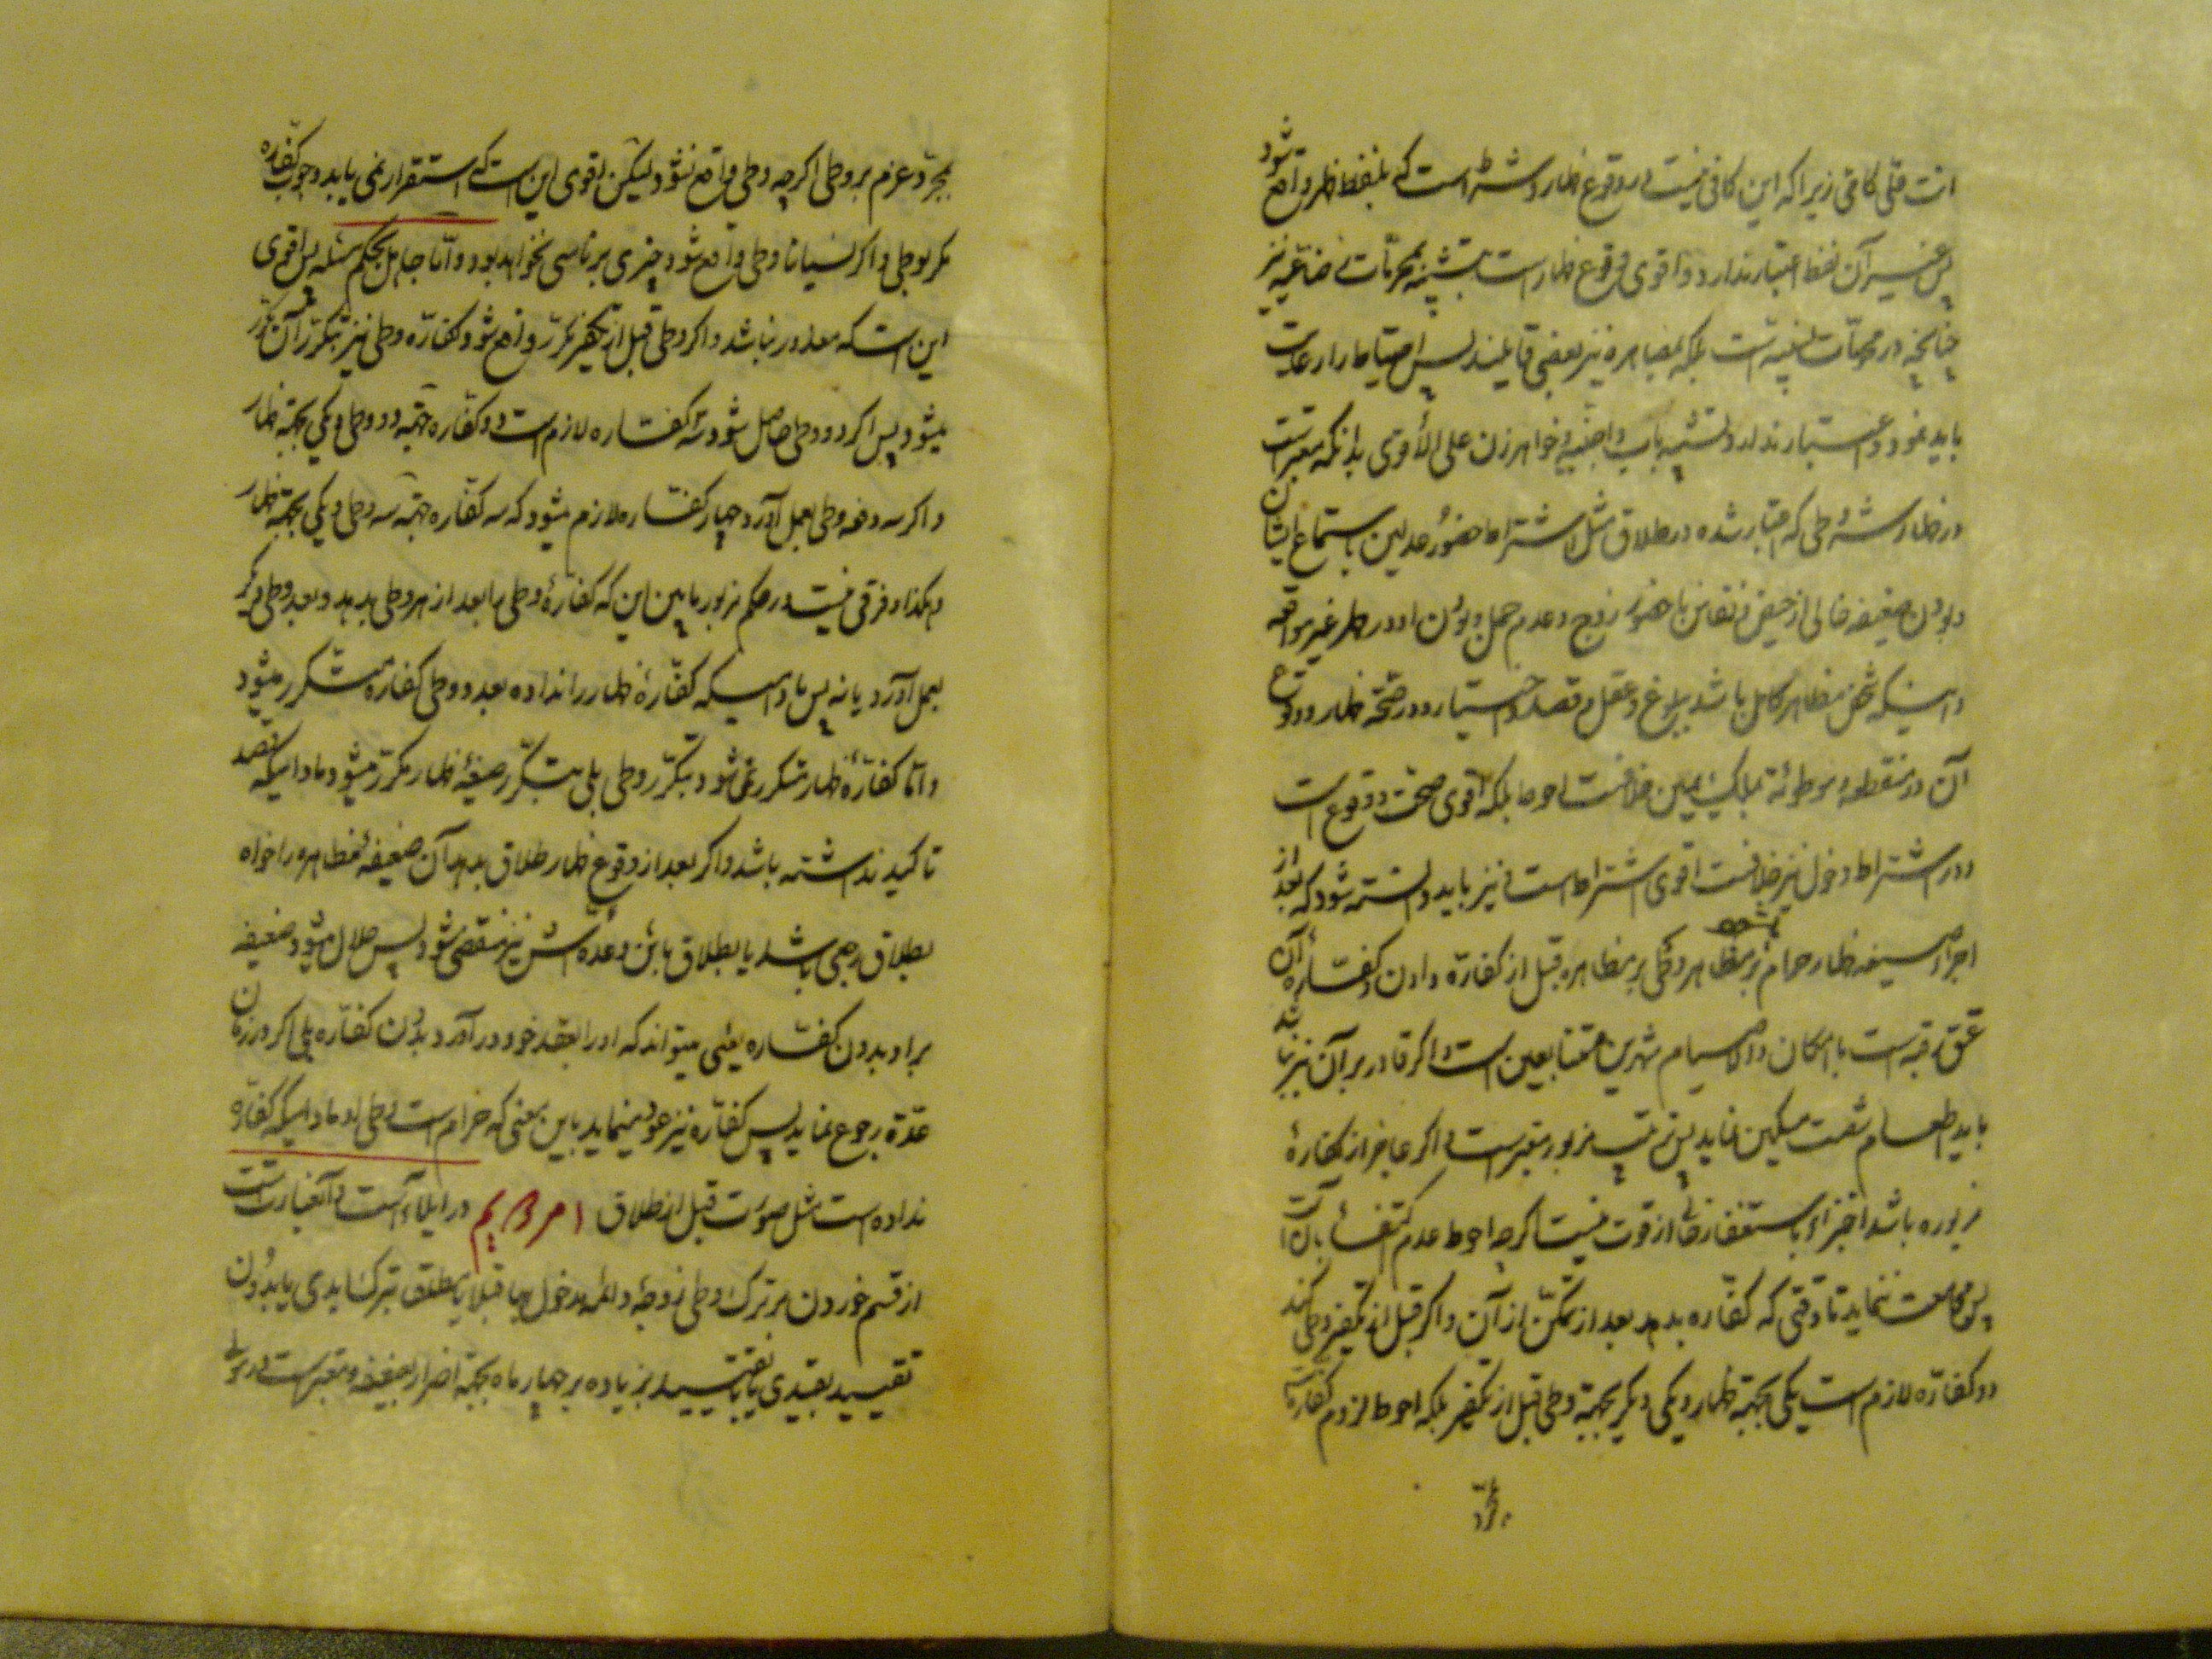 انت مثل کافی زیرا که این کافی نیست در وقوع ظهار و شرط است که بلفظ ظهر واقع شود
پس غیر آن لفظ اعتبار ندارد و اقوی وقوع ظهار است بتشبیه بمحرمات رضاعیه نیز
چنانچه در محرمات نسبیه است بلکه بمصاهره نیز بعضی قایلند پس احتیاط را رعایت
باید نمود و اعتبار ندارد تشبیه باب و اجنبیه و خواهر زن علی الأقوی بدانکه معتبر است
در ظهار شروطی که اعتبار شده در طلاق مثل اشتراط حضور عدلین با استماع ایشان
و بودن ضعیفه خالی از حیض و نفاس با حضور زوج و عدم حمل و بودن او در طهر غیر مواقعه
و اینکه شخص مظاهر کامل باشد ببلوغ و عقل و قصد و اختیار و در صحة ظهار و وقوع
آن در منقطعه و موطوئه بملک یمین خلافست احوط بلکه اقوی صحت و وقوع است
و در اشتراط دخول نیز خلافست اقوی اشتراط است و نیز باید دانسته شود که بعد از
اجراء صیغه ظهار حرام میشود بر مظاهر وطی بر مظاهره قبل از کفاره دادن و کفاره آن
عتق رقبه است با امکان و الا صیام شهرین متتابعین است و اگر قادر بر آن نیز نباشد
باید اطعام شصت مسکین نماید پس ترتیب مزبور معتبر است و اگر عاجز از کفارهٔ
مزبوره باشد اجتزاء باستغفار خالی از قوت نیست اگرچه احوط عدم اکتفا بآنست
پس مجامعت ننماید تا وقتی که کفاره بدهد بعد از تمکن از آن و اگر قبل از تکفیر وطی کند
دو کفاره لازم است یکی بجهة ظهار و یکی دیگر بجهة وطی قبل از تکفیر بلکه احوط لزوم کفاره است
بمجرد
بمجرد عزم بر وطی اگرچه وطی واقع نشود لیکن اقوی این است که استقرار نمی یابد وجوب کفاره
مگر بوطی و اگر نسیانا وطی واقع شود چیزی بر ناسی نخواهد بود و اما جاهل بحکم مسئله پس اقوی
این است که معذور نباشد و اگر وطی قبل از تکفیر مکرر واقع شود کفاره وطی نیز بتکرر آن مکرر
میشود پس اگر دو وطی حاصل شود سه کفاره لازم است دو کفاره جهة دو وطی و یکی بجهة ظهار
و اگر سه دفعه وطی بعمل آورد چهار کفاره لازم میشود که سه کفاره جهة سه وطی و یکی بجهة ظهار
و هکذا و فرقی نیست در حکم مزبور مابین این که کفارهٔ وطی را بعد از هر وطی بدهد و بعد وطی دیگر
بعمل آورد یا نه پس مادامیکه کفارهٔ ظهار را نداده بعدد وطی کفاره متکرر میشود
و اما کفارهٔ ظهار متکرر نمی شود بتکرر وطی بلی بتکرر صیغهٔ ظهار مکرر میشود مادامیکه قصد
تاکید نداشته باشد و اگر بعد از وقوع ظهار طلاق بدهد آن ضعیفه مظاهره را خواه
بطلاق رجعی باشد یا بطلاق باین و عده اش نیز منقضی شود پس حلال میشود ضعیفه
بر او بدون کفاره یعنی میتواند که او را بعقد خود درآورد بدون کفاره بلی اگر در زمان
عده رجوع نماید پس کفاره نیز عود مینماید باین معنی که حرام است وطی او مادامیکه کفاره
نداده است مثل صورت قبل از طلاق امر دویم در ایلاء است و آن عبارت است
از قسم خوردن بر ترک وطی زوجه دائمه مدخول بها قبلا یا مطلق بترک ابدی یا بدون
تقیید بقیدی یا با تقیید بزیاده بر چهار ماه بجهة اضرار بضعیفه و معتبر است در مولی